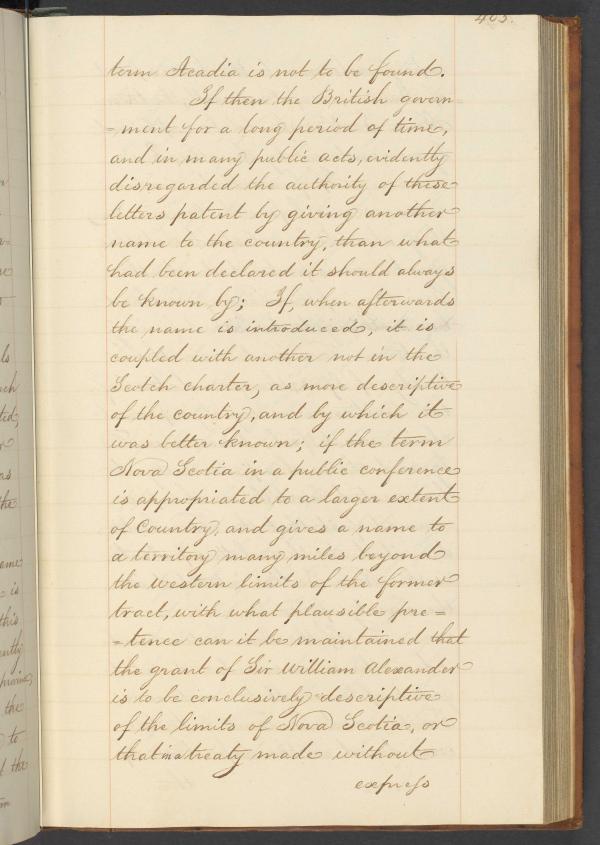 term Acadia is not to be found.
If then the British govern
=ment for a long period of time,
and in many public acts, evidently
disregarded the authority of these
letters patent by giving another
name to the country, than what
had been declared it should always
be known by; If, when afterwards
the name is introduced, it is
coupled with another not in the
Scotch charter, as more descriptive
of the country, and by which it
was better known; if the term
Nova Scotia in a public conference
is appropriated to a larger extent
of Country, and gives a name to
a territory many miles beyond
the western limits of the former
tract, with what plausible pre=
=tence can it be maintained that
the grant of Sir William Alexander
is to be conclusively descriptive
of the limits of Nova Scotia, or
that in a treaty made without
express